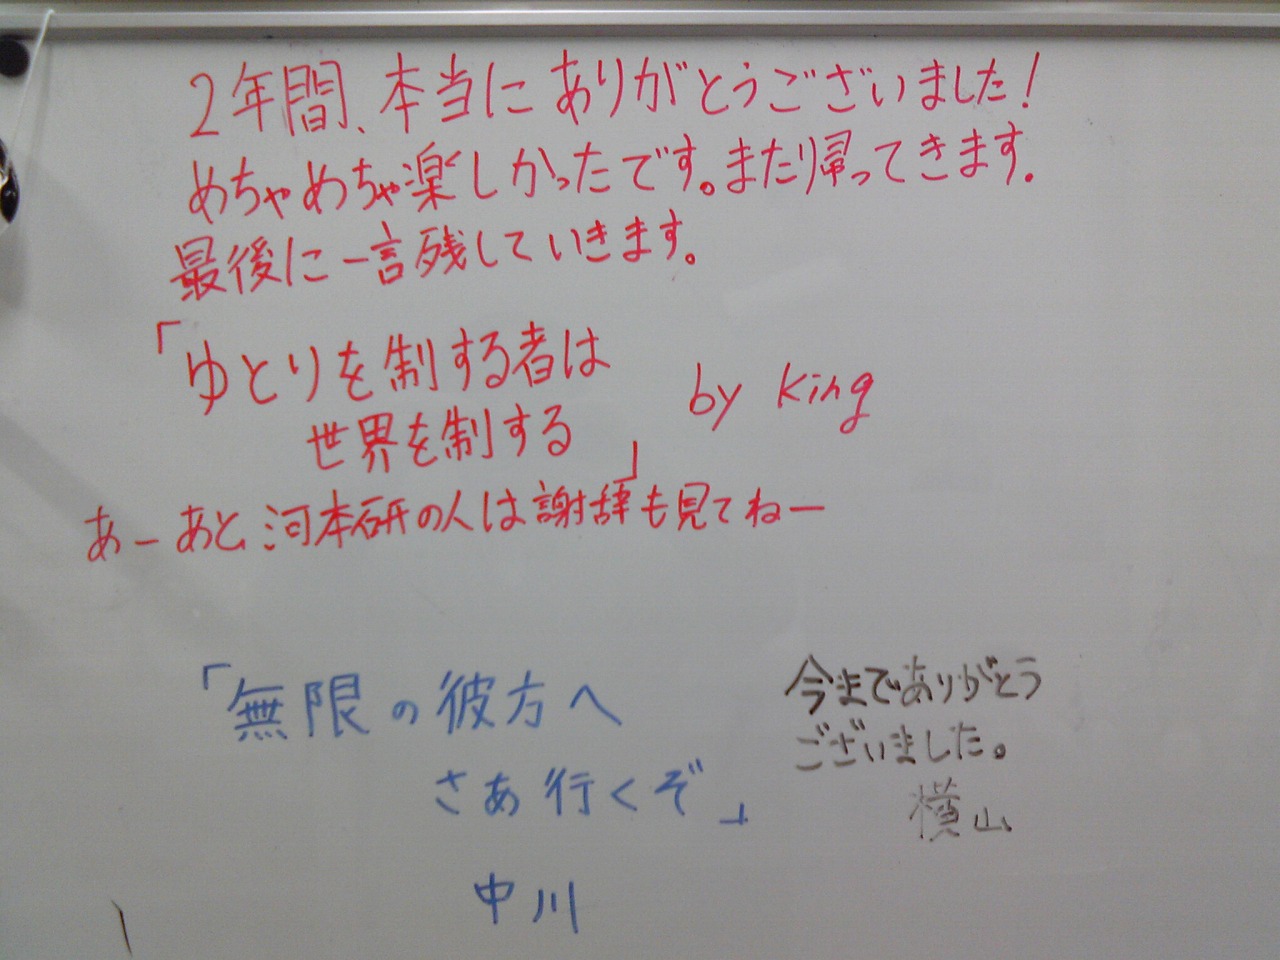 2年間、本当にありがとうございました！
めちゃめちゃ楽しかったです。またり帰ってきます。
最後に一言残していきます。
「ゆとりを制する者は
世界を制する」
by king
あーあと、河本研の人は謝辞も見てねー
「無限の彼方へ
さあ行くぞ」
中川
今までありがとう
ございました。
横山